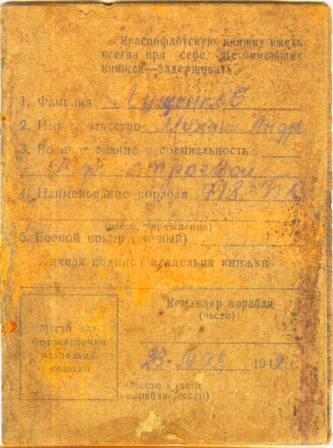 Краснофлотскую книжку иметь
всегда при себе. Не имеющих
книжек—задерживать.
1. Фамилия Лущенков
2. Имя и отчество Михаил Андр
3. Военное звание и специальность
строевой
4. Наименование корабля 718
(части, учреждения)
5. Боевой номер (личный)
Личная подпись владельца книжки
Командир корабля
(части)
Место для
фотокарточки
владельца
книжки
23 мая 1942 г.
(Место печати
корабля, части)